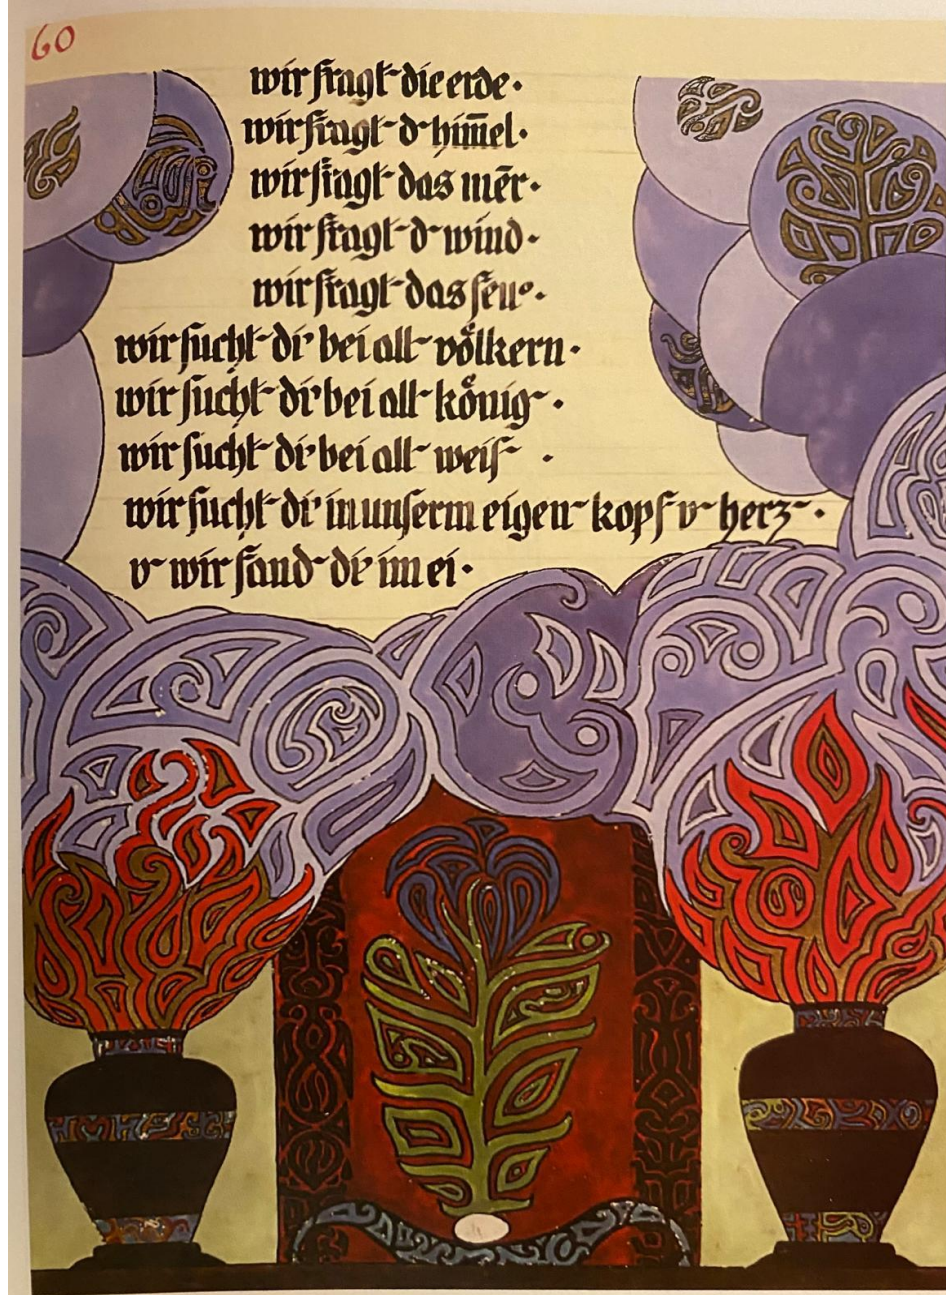 60
wir fragt die erde.
wir fragt d' him̄el.
wir fragt das mēr.
wir fragt d' wind.
wir fragt das feu°.
wir sucht di' bei all' völkern.
wir sucht di' bei all' könig'.
wir sucht di' bei all' weis'.
wir sucht di' in unserm eigen' kopf v' herz'.
v' wir fand' di' im ei.